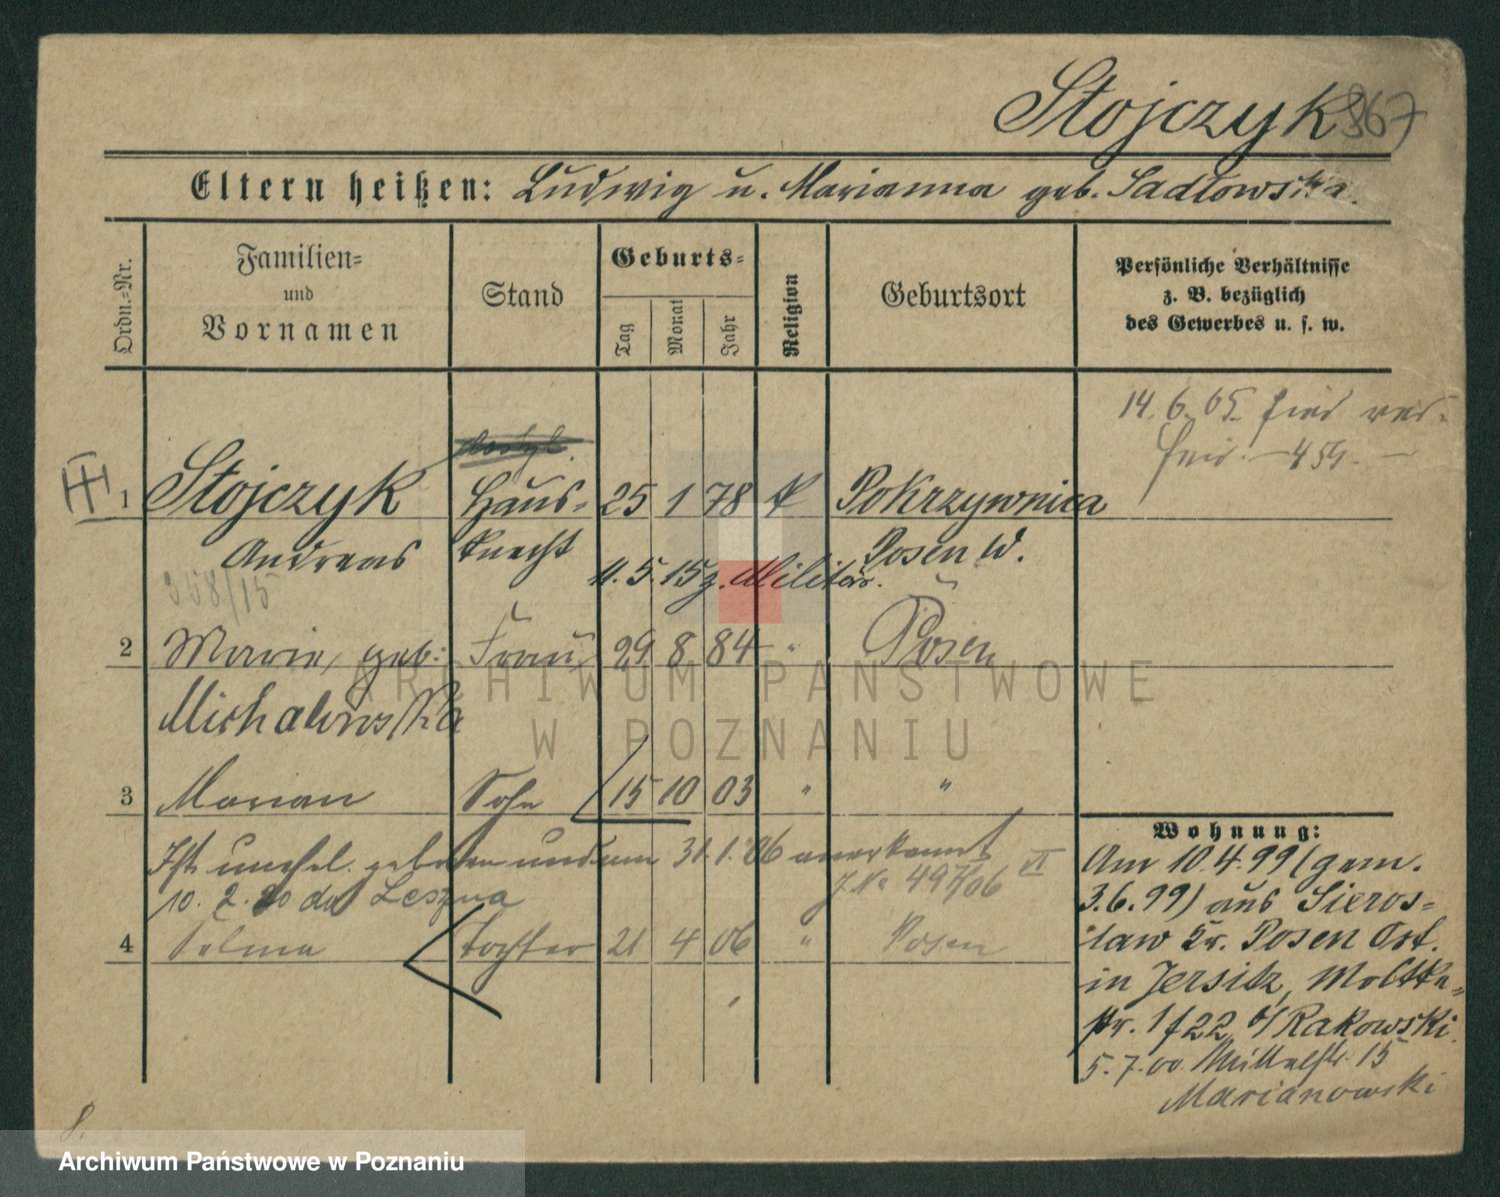 Stojczyk 867
Eltern heißen: Ludwig u. Marianna geb. Sadlowska.
Ordn.-Nr.
Familien-
und
Vornamen
Stand
Geburts-
Tag
Monat
Jahr
Religion
Geburtsort
Persönliche Verhältnisse
z. B. bezüglich
des Gewerbes u. s. w.
14. 6. 05.
459. —
III
1 Stojczyk Haus- 25 1 78 k Pokrzywnica
Andreas knecht Posen W.
11. 5. 15 z. Militär.
358/15
2 Marie, geb. Frau 29 8 84 " Posen
Michalowska
3 Marian Sohn 15 10 03 " "
Ist unehel. geboren und am 31. 1. 06 anerkannt
J. No 497/06 VI
10. 2. 20 Leszna
4 Tochter 21 4 06 " Posen
Wohnung:
Am 10.4.99 (gem.
3.6.99) aus Sieros-
law Kr. Posen Ost.
in Jersitz, Moltke-
str. 1 / 22 b/ Rakowski.
5. 7. 00. Mittelstr. 15
Marianowski
8.
ARCHIWUM PAŃSTWOWE
W POZNANIU
Archiwum Państwowe w Poznaniu